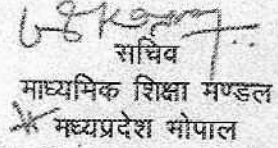 सचिव
माध्यमिक शिक्षा मण्डल
मध्यप्रदेश भोपाल